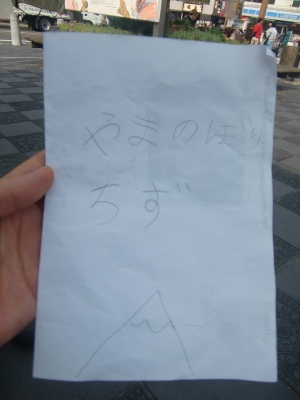 やまのぼり
ちず